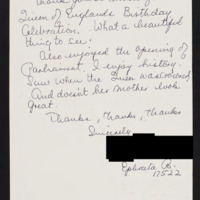 Thank you
Queen of Englands Birthday
Celebration. What a beautiful
thing to see.
Also enjoyed the opening of
Parliament, I enjoy history.
Saw when the Queen was crowned.
And doesn't her mother look
great.
Thanks, Thanks, Thanks
Sincerely
Ephrata Pa.
17522